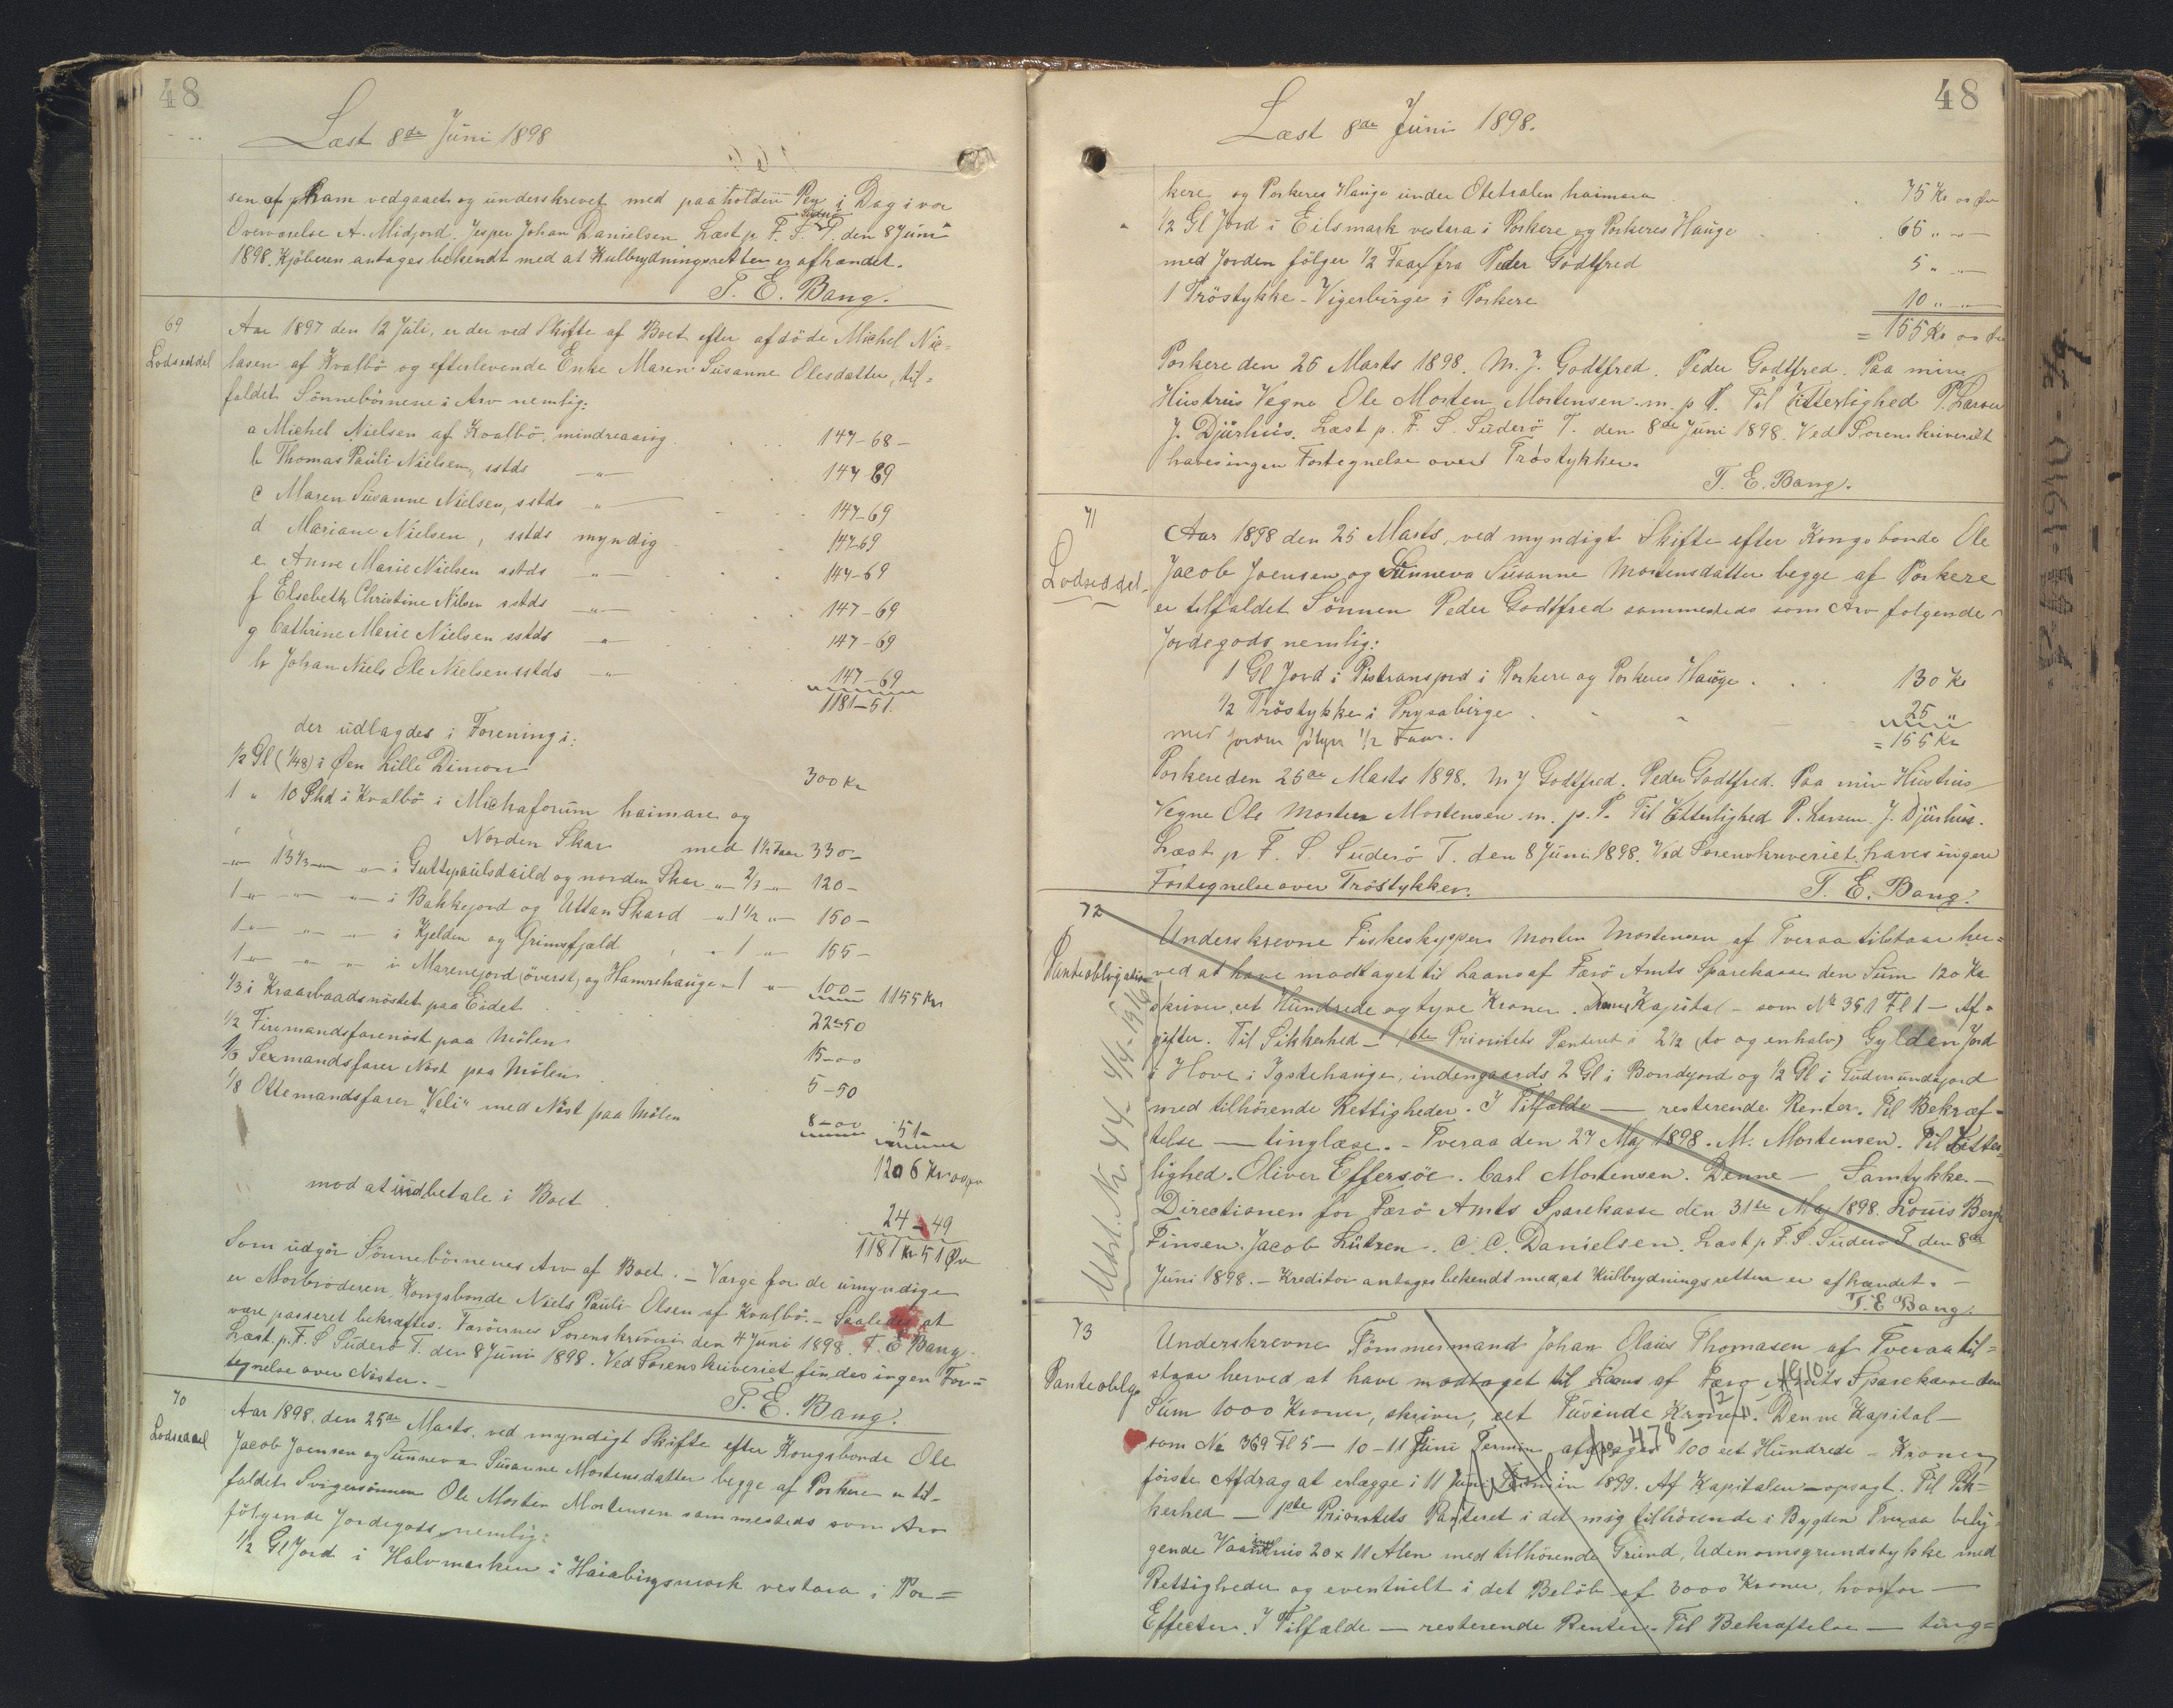 48
Læst 8de Juni 1898
sen af pham vedgaaet og underskrevet med paaholden Pen i Dag i vor
Overværelse A. Midjord. Jesper Johan Danielsen. Læst p. F. S. Suderø T. den 8 Juni
1898. Kjøberen antages bekendt med at Kulbrydningsretten er afhændet.
T. E. Bang.
69
Lodseddel
Aar 1897 den 12 Juli, er der ved Skifte af Boet efter afdøde Michel Nic=
lasen af Kvalbø og efterlevende Enke Maren Susanne Olesdatter, til=
faldet Sønnebørnene i Arv nemlig:
a Michel Nielsen af Kvalbø, mindreaarig 147-68-
b Thomas Pauli Nielsen, sstds -"- 147 69
c Maren Susanne Nielsen, sstds -"- 147-69
d Mariane Nielsen, sstds myndig 147-69
e Anne Marie Nielsen sstds -"- 147-69
f Elsebeth Christine Nilsen sstds -"- 147-69
g Cathrine Marie Nielsen sstds -"- 147-69
h Johan Niels Ole Nielsen sstds -"- 147-69
1181-51
der udlagdes i Forening i:
1/2 Gl (1/48) i Øen Lille Dimon 300 Kr
1 " 10 Skd i Kvalbø i Michaforum haimare og
Norden Skar med 1 1/2 Faar 330-
-"- 13 1/3 -"- -"- i Guttepaulsdaild og norden Skar -"- 2/3 -"- 120-
1 -"- -"- -"- i Bakkejord og Uttan Skard -"- 1 1/2 -"- 150-
1 -"- -"- -"- i Kjelden og Grimsfjæld " -"- 1 -"- 155-
1 -"- -"- -"- i Marenejord (øverst) og Hamrehauge -"- 1 -"- 100- 1155 Kr
1/3 i Kraarbaadsnøstet paa Eidet 22-50
1/2 Firemandsfarenøst paa Mølen 15-00
1/6 Sexmandsfarer Nøst paa Mølen 5-50
1/8 Ottemandsfarer "Veli" med Nøst paa Mølen 8-00 51-
1206 Kr 00 Ør
mod at indbetale i Boet 24-49
1181 Kr 51 Øre
Som udgør Sønnebørnenes Arv af Boet. - Værge for de umyndige
er Morbroderen, Kongsbonde Niels Pauli Olsen af Kvalbø. - Saaledes at
være passeret bekræftes. Færøernes Sorenskriveri den 4 Juni 1898. T. E Bang.
Læst. p. F. S Suderø T. den 8 Juni 1898. Ved Sorenskriveriet findes ingen For=
tegnelse over Nøster. -
T. E. Bang.
70
Lodseddel
Aar 1898. den 25de Marts, ved myndigt Skifte efter Kongsbonde Ole
Jacob Joensen og Sunneva Susanne Mortensdatter begge af Porkere er til-
faldet Svigersønnen Ole Morten Mortensen sammesteds som Arv
følgende Jordegods nemlig:
1/2 Gl Jord i Halvmarken i Haiabirgsmork vestara i Por=
48
Læst 8de Juni 1898.
kere og Porkeres Hauge under Oletralen haimara 75 Kr 00 Ør
1/2 Gl Jord i Eilsmark vestara i Porkere og Porkeres Hauge 65 " -"-
med Jorden følger 1/2 Faar fra Peder Godtfred 5 " -"-
1 Trøstykke - Vigerbirge i Porkere 10 " -"-
= 155 Kr 00 Ør
Porkere den 25 Marts 1898. M. J. Godtfred. Peder Godtfred. Paa min
Hustrus Vegne Ole Morten Mortensen m. p P. Til Vitterlighed P. Larsen
J. Djurhus. Læst p. F. S. Suderø T. den 8de Juni 1898. Ved Sorenskriveriet
haves ingen Fortegnelse over Trøstykker.
T. E. Bang.
71
Lodseddel.
Aar 1898 den 25 Marts, ved myndigt Skifte efter Kongsbonde Ole
Jacob Joensen og Sunneva Susanne Mortensdatter begge af Porkere
er tilfaldet Sønnen Peder Godtfred sammesteds som Arv følgende
Jordegods nemlig:
1 Gl Jord i Pistransjord i Porkere og Porkeres Hauge 130 Kr
1/2 Trøstykke i Prysabirge 25 "
med Jorden følger 1/2 Faar. = 155 Kr
Porkere den 25de Marts 1898. M J Godtfred. Peder Godtfred. Paa min Hustrus
Vegne Ole Morten Mortensen m. p. P. Til Vitterlighed P. Larsen. J. Djurhus.
Læst p F. S. Suderø T. den 8 Juni 1898. Ved Sorenskriveriet haves ingen
Fortegnelse over Trøstykker.
T. E. Bang.
72
Panteobligation
Underskrevne Fiskeskipper Morten Mortensen af Tveraa tilstaar her=
ved at have modtaget til Laans af Færø Amts Sparekasse den Sum 120 Kr
skriver, et Hundrede og tyve Kroner. Denne Kapital - som No 351 Fl 1 - Af=
gifter. Til Sikkerhed - 1ste Prioritets Panteret i 2 1/2 (to og en halv) Gylden Jord
i Hove i Ygstehauge, indengaards 2 Gl i Bondejord og 1/2 Gl i Gudmundajord
med tilhørende Rettigheder. I Tilfælde - resterende Renter. Til Bekræf=
telse - tinglæse. - Tveraa den 27 Maj 1898. M. Mortensen. Til Vitter=
lighed. Oliver Effersøe. Carl Mortensen. Denne - Samtykke. -
Directionen for Færø Amts Sparekasse den 31te Maj 1898. Louis Bergh
Finsen. Jacob Lützen. C. C. Danielsen. Læst p. F. S. Suderø T. den 8de
Juni 1898. - Kreditor antages bekendt med at Kulbrydningsretten er afhændet. -
T. E Bang.
Udsl. Nr 44 - 4/4 - 1916
73
Panteoblg.
Underskrevne Tømmermand Johan Olaus Thomasen af Tveraa til=
staar herved at have modtaget til Laans af Færø Amts Sparekasse den
Sum 1000 Kroner, skriver, eet Tusinde Kroner. Denne Kapital -
som No 369 Fl 5 - 10-11 Juni Termin afdrages 100 eet Hundrede - Kroner
første Afdrag at erlægge i 11 Juni Termin 1899. Af Kapitalen - opsagt. Til Sik=
kerhed - 1ste Prioritets Panteret i det mig tilhørende i Bygden Tveraa belig=
gende Vaaningshus 20 x 11 Alen med tilhørende Grund, Udenomsgrundstykke med
Rettigheder og eventuelt i det Beløb af 3000 Kroner, hvorfor -
Effecter. I Tilfælde - resterende Renter. Til Bekræftelse - ting=